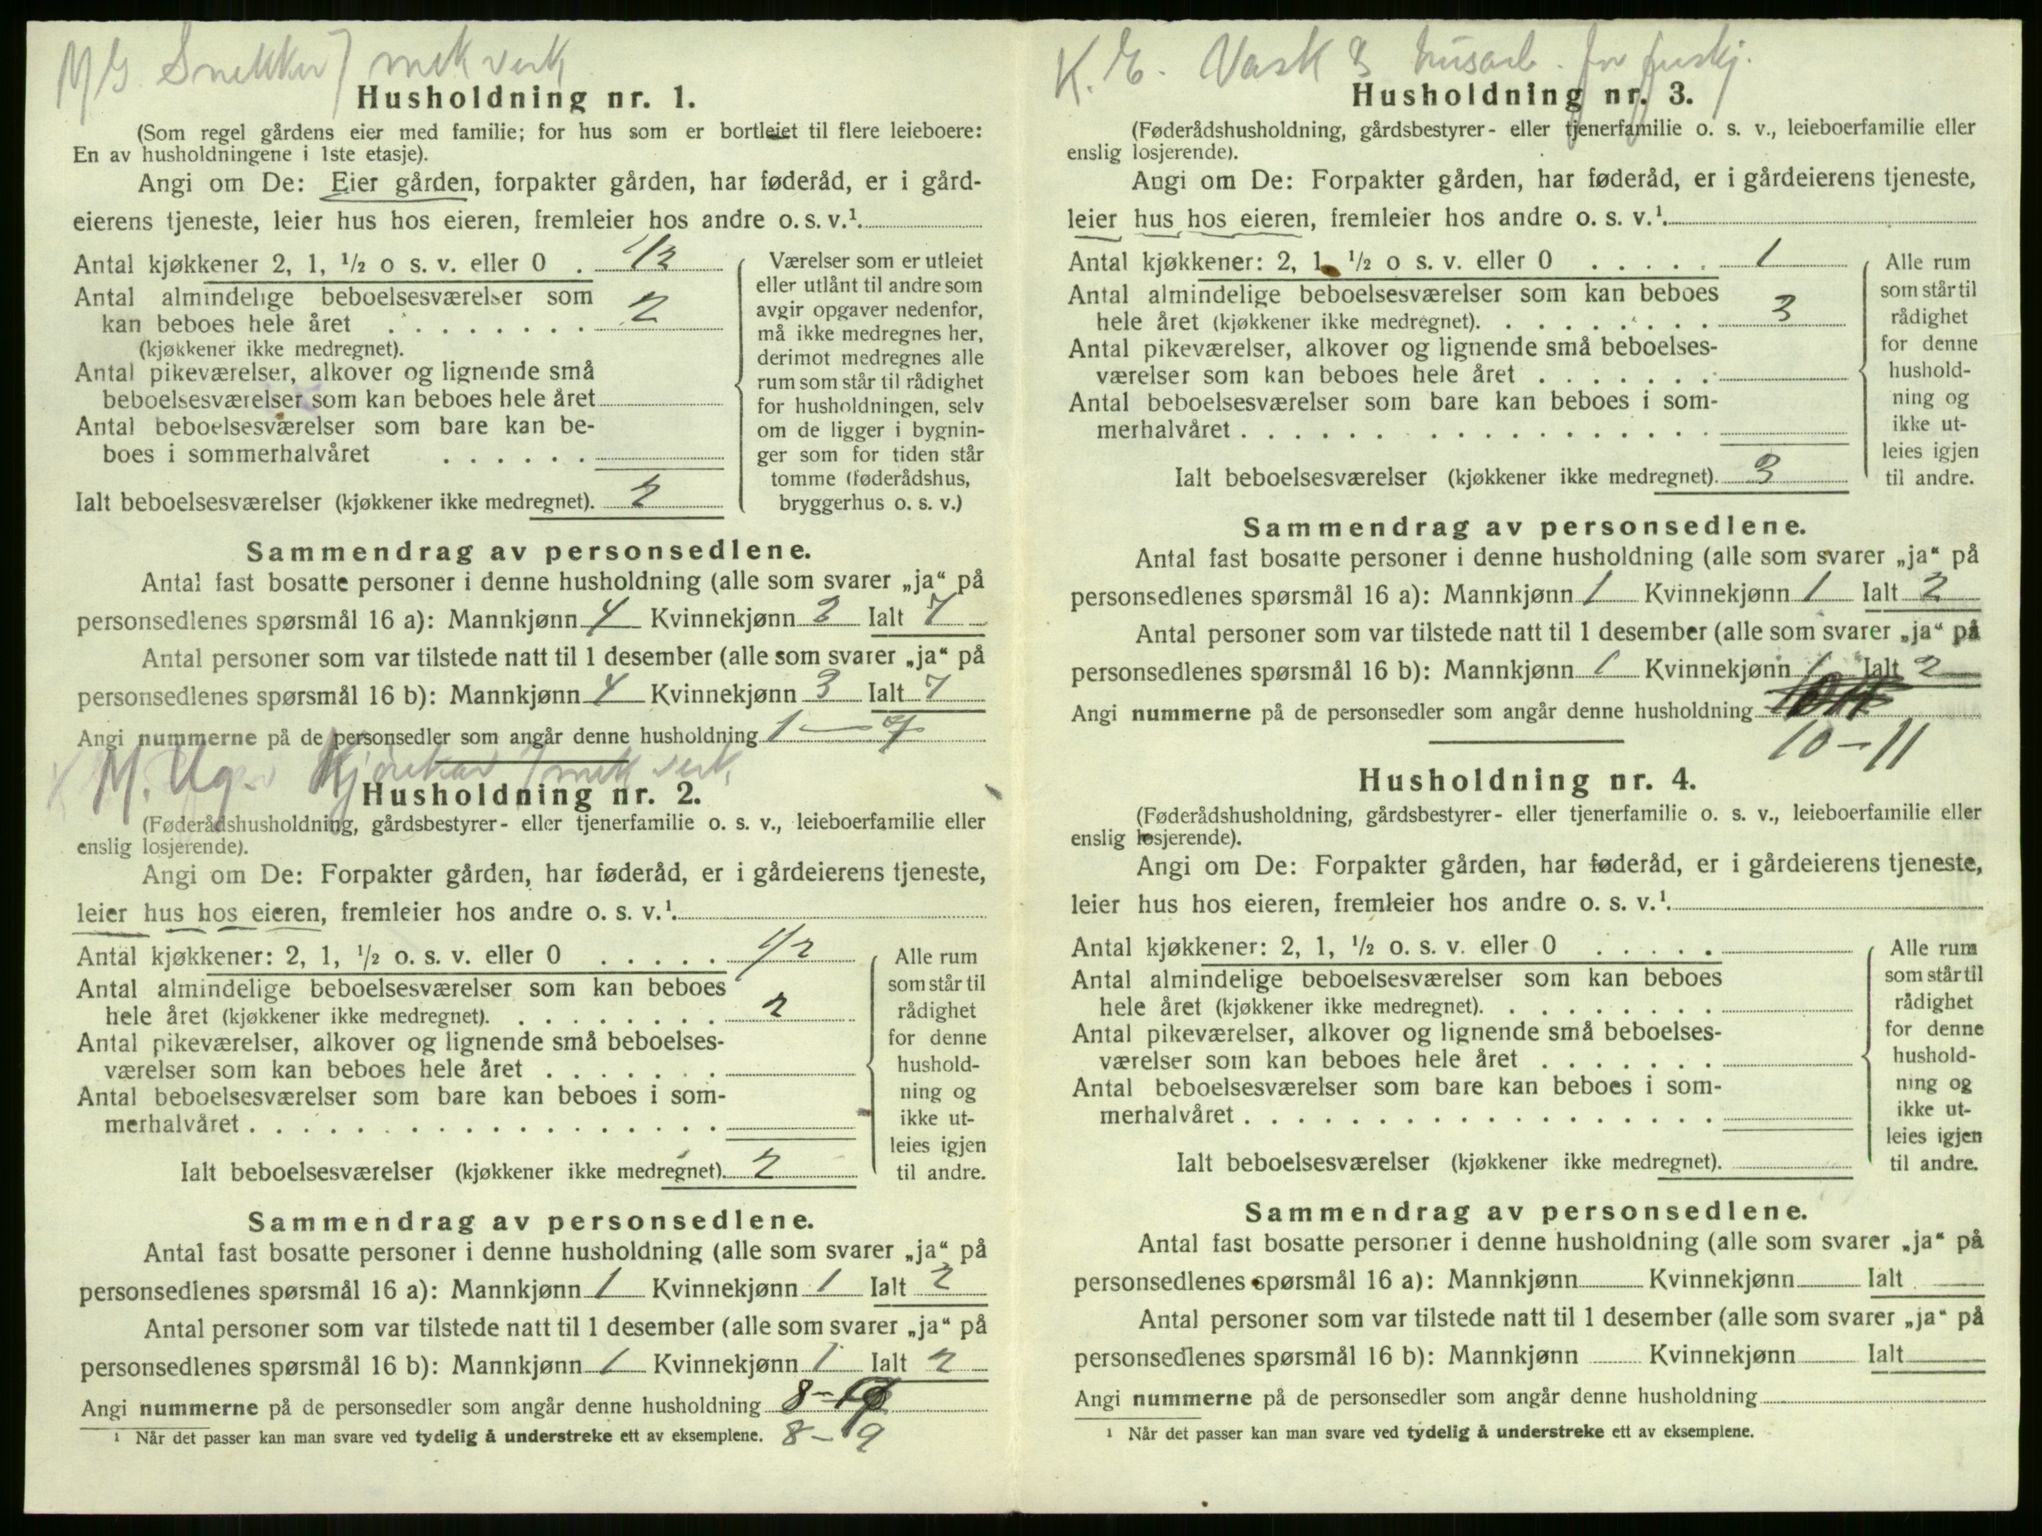 M. G. Snekker / mek verk
Husholdning nr. 1.
(Som regel gårdens eier med familie; for hus som er bortleiet til flere leieboere:
En av husholdningene i 1ste etasje).
Angi om De: Eier gården, forpakter gården, har føderåd, er i gård-
eierens tjeneste, leier hus hos eieren, fremleier hos andre o. s. v.¹.
Antal kjøkkener 2, 1, ½ o s. v. eller 0 . 1/2
Antal almindelige beboelsesværelser som
kan beboes hele året . . . . . . . . 2
(kjøkkener ikke medregnet).
Antal pikeværelser, alkover og lignende små
beboelsesværelser som kan beboes hele året
Antal beboelsesværelser som bare kan be-
boes i sommerhalvåret . . . . . .
Ialt beboelsesværelser (kjøkkener ikke medregnet). 2
Værelser som er utleiet
eller utlånt til andre som
avgir opgaver nedenfor,
må ikke medregnes her,
derimot medregnes alle
rum som står til rådighet
for husholdningen, selv
om de ligger i bygnin-
ger som for tiden står
tomme (føderådshus,
bryggerhus o. s. v.)
Sammendrag av personsedlene.
Antal fast bosatte personer i denne husholdning (alle som svarer „ja“ på
personsedlenes spørsmål 16 a): Mannkjønn 4 Kvinnekjønn 3 Ialt 7
Antal personer som var tilstede natt til 1 desember (alle som svarer „ja“ på
personsedlenes spørsmål 16 b): Mannkjønn 4 Kvinnekjønn 3 Ialt 7
Angi nummerne på de personsedler som angår denne husholdning 1 — 7
M. Ug. Kjørekar / mek verk.
Husholdning nr. 2.
(Føderådshusholdning, gårdsbestyrer- eller tjenerfamilie o. s. v., leieboerfamilie eller
enslig losjerende).
Angi om De: Forpakter gården, har føderåd, er i gårdeierens tjeneste,
leier hus hos eieren, fremleier hos andre o. s. v.¹.
Antal kjøkkener: 2, 1, ½ o. s. v. eller 0 . . . . . 1/2
Antal almindelige beboelsesværelser som kan beboes
hele året (kjøkkener ikke medregnet). . . . . . . . . 2
Antal pikeværelser, alkover og lignende små beboelses-
værelser som kan beboes hele året . . . . . . .
Antal beboelsesværelser som bare kan beboes i som-
merhalvåret . . . . . . . . . . . . . . . . . .
Ialt beboelsesværelser (kjøkkener ikke medregnet). 2
Alle rum
som står til
rådighet
for denne
hushold-
ning og
ikke ut-
leies igjen
til andre.
Sammendrag av personsedlene.
Antal fast bosatte personer i denne husholdning (alle som svarer „ja“ på
personsedlenes spørsmål 16 a): Mannkjønn 1 Kvinnekjønn 1 Ialt 2
Antal personer som var tilstede natt til 1 desember (alle som svarer „ja“ på
personsedlenes spørsmål 16 b): Mannkjønn 1 Kvinnekjønn 1 Ialt 2
Angi nummerne på de personsedler som angår denne husholdning 8 –
¹ Når det passer kan man svare ved tydelig å understreke ett av eksemplene. 8 – 9
K. E. Vask & husarb. for fuskj.
Husholdning nr. 3.
(Føderådshusholdning, gårdsbestyrer- eller tjenerfamilie o. s. v., leieboerfamilie eller
enslig losjerende).
Angi om De: Forpakter gården, har føderåd, er i gårdeierens tjeneste,
leier hus hos eieren, fremleier hos andre o. s. v.¹.
Antal kjøkkener: 2, 1, ½ o s. v. eller 0 . . . . . 1
Antal almindelige beboelsesværelser som kan beboes
hele året (kjøkkener ikke medregnet). . . . . . . . . 3
Antal pikeværelser, alkover og lignende små beboelses-
værelser som kan beboes hele året . . . . . . .
Antal beboelsesværelser som bare kan beboes i som-
merhalvåret . . . . . . . . . . . . . . . . . .
Ialt beboelsesværelser (kjøkkener ikke medregnet). 3
Alle rum
som står til
rådighet
for denne
hushold-
ning og
ikke ut-
leies igjen
til andre.
Sammendrag av personsedlene.
Antal fast bosatte personer i denne husholdning (alle som svarer „ja“ på
personsedlenes spørsmål 16 a): Mannkjønn 1 Kvinnekjønn 1 Ialt 2
Antal personer som var tilstede natt til 1 desember (alle som svarer „ja“ på
personsedlenes spørsmål 16 b): Mannkjønn 1 Kvinnekjønn 1 Ialt 2
Angi nummerne på de personsedler som angår denne husholdning
10 – 11
Husholdning nr. 4.
(Føderådshusholdning, gårdsbestyrer- eller tjenerfamilie o. s. v., leieboerfamilie eller
enslig losjerende).
Angi om De: Forpakter gården, har føderåd, er i gårdeierens tjeneste,
leier hus hos eieren, fremleier hos andre o. s. v.¹.
Antal kjøkkener: 2, 1, ½ o. s. v. eller 0 . . . . .
Antal almindelige beboelsesværelser som kan beboes
hele året (kjøkkener ikke medregnet). . . . . . . . .
Antal pikeværelser, alkover og lignende små beboelses-
værelser som kan beboes hele året . . . . . . .
Antal beboelsesværelser som bare kan beboes i som-
merhalvåret . . . . . . . . . . . . . . . . . .
Ialt beboelsesværelser (kjøkkener ikke medregnet).
Alle rum
som står til
rådighet
for denne
hushold-
ning og
ikke ut-
leies igjen
til andre.
Sammendrag av personsedlene.
Antal fast bosatte personer i denne husholdning (alle som svarer „ja“ på
personsedlenes spørsmål 16 a): Mannkjønn Kvinnekjønn Ialt
Antal personer som var tilstede natt til 1 desember (alle som svarer „ja“ på
personsedlenes spørsmål 16 b): Mannkjønn Kvinnekjønn Ialt
Angi nummerne på de personsedler som angår denne husholdning
¹ Når det passer kan man svare ved tydelig å understreke ett av eksemplene.